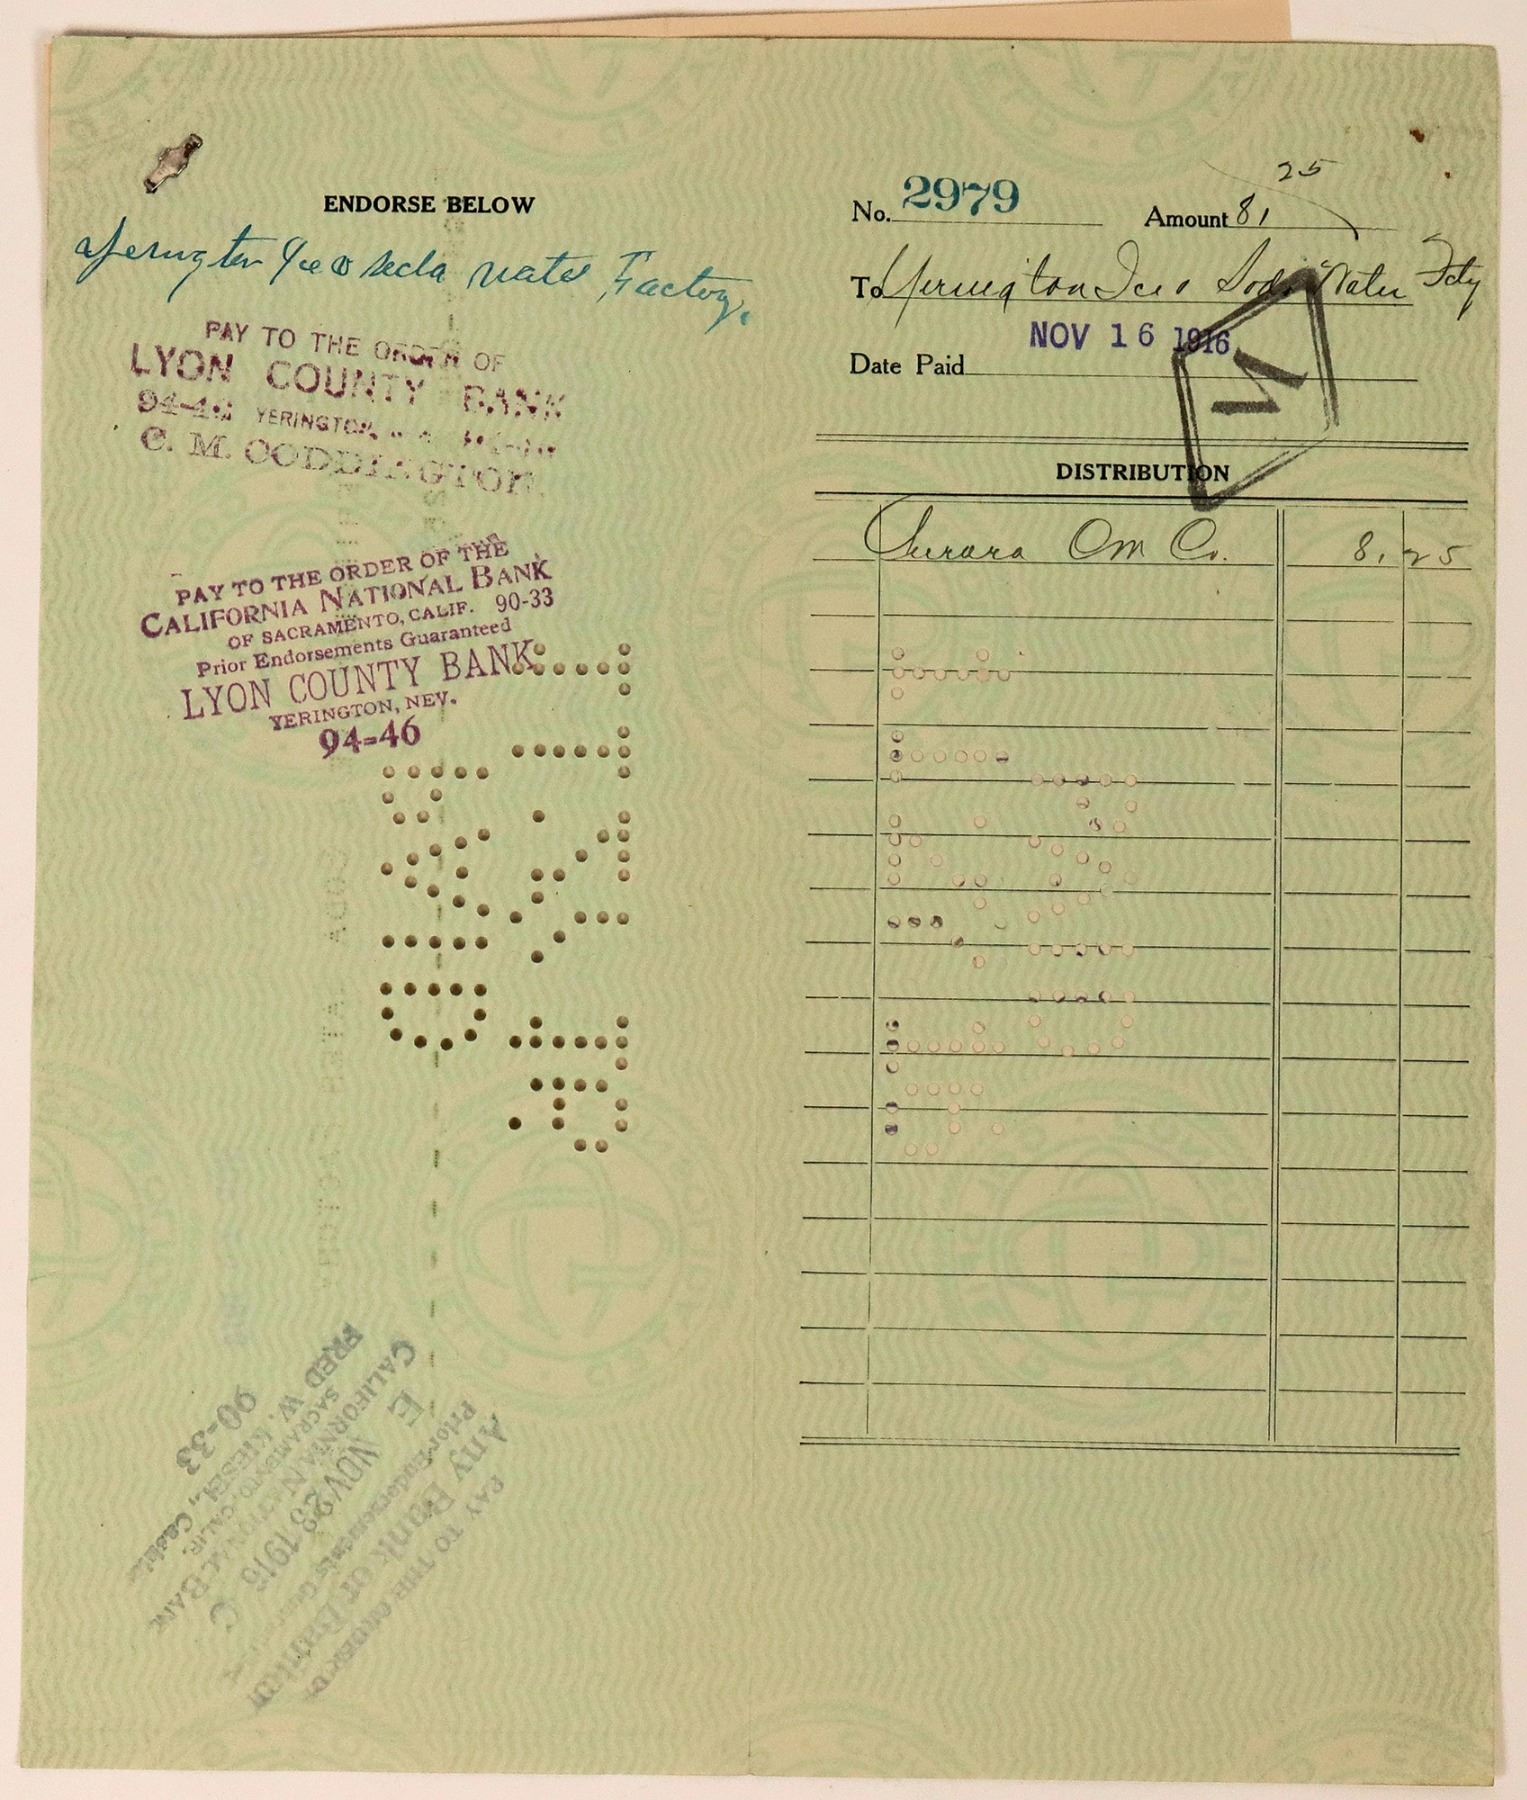 ENDORSE BELOW
Yerington Ice & Soda Water Factory.
PAY TO THE ORDER OF
LYON COUNTY BANK
94-46 YERINGTON,
C. M. CODDINGTON.
PAY TO THE ORDER OF THE
CALIFORNIA NATIONAL BANK
OF SACRAMENTO, CALIF. 90-33
Prior Endorsements Guaranteed
LYON COUNTY BANK
YERINGTON, NEV.
94-46
PAID
PAY TO THE ORDER OF
Any Bank or Banker
Prior Endorsements
E NOV 23 1916 C
CALIFORNIA NATIONAL BANK
SACRAMENTO, CALIF.
FRED W. KIESEL, Cashier
90-33
No. 2979 Amount 81 25
To Yerington Ice & Soda Water Fcty
NOV 16 1916
Date Paid
M
DISTRIBUTION
Aurora C M Co. 81 25